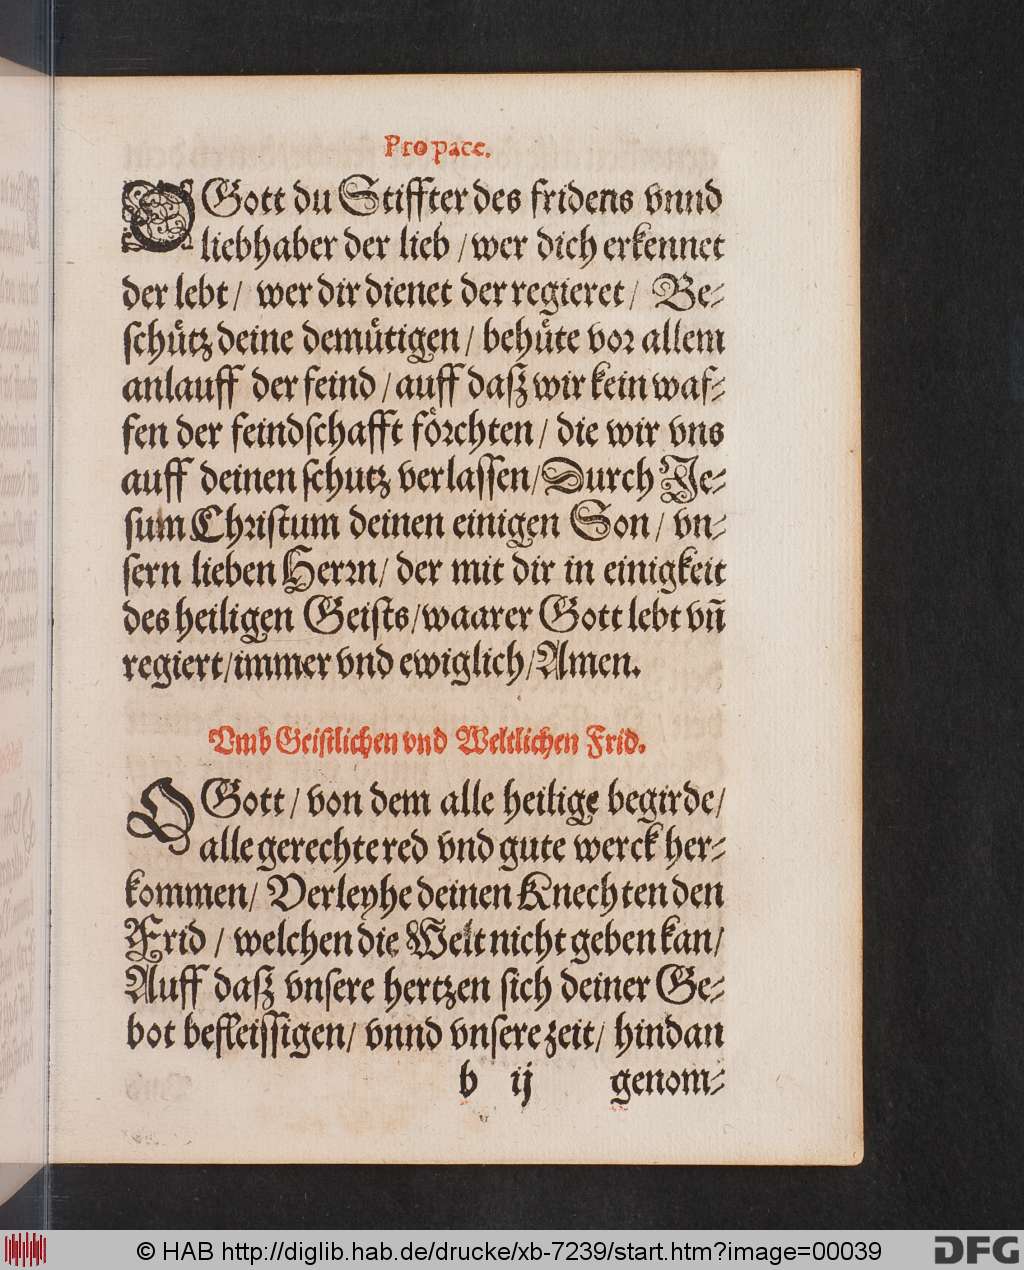 Pro pace.
O Gott du Stiffter des fridens vnnd
liebhaber der lieb / wer dich erkennet
der lebt / wer dir dienet der regieret / Be⸗
schuͤtz deine demuͤtigen / behuͤte vor allem
anlauff der feind / auff dasz wir kein waf⸗
fen der feindschafft foͤrchten / die wir vns
auff deinen schutz verlassen / Durch Je⸗
sum Christum deinen einigen Son / vn⸗
sern lieben Herrn / der mit dir in einigkeit
des heiligen Geists / waarer Gott lebt vn̄
regiert / immer vnd ewiglich / Amen.
Vmb Geistlichen vnd Weltlichen Frid.
O Gott / von dem alle heilige begirde /
alle gerechte red vnd gute werck her⸗
kommen / Verleyhe deinen Knechten den
Frid / welchen die Welt nicht geben kan /
Auff dasz vnsere hertzen sich deiner Ge⸗
bot befleissigen / vnnd vnsere zeit / hindan
b ij genom⸗
© HAB http://diglib.hab.de/drucke/xb-7239/start.htm?image=00039
DFG